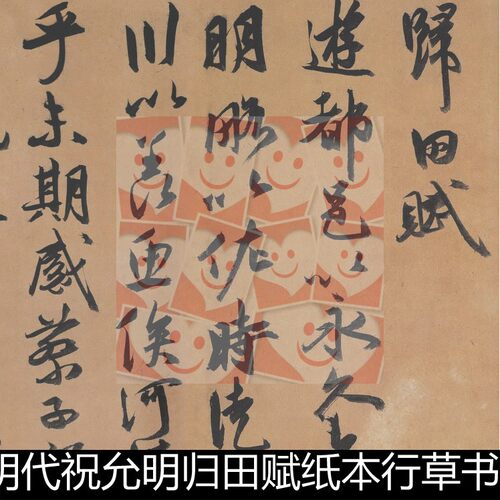 歸田賦
遊都邑以永久
明略以佐時徒
川以羨魚俟河
乎未期感蔡子
明代祝允明归田赋纸本行草书